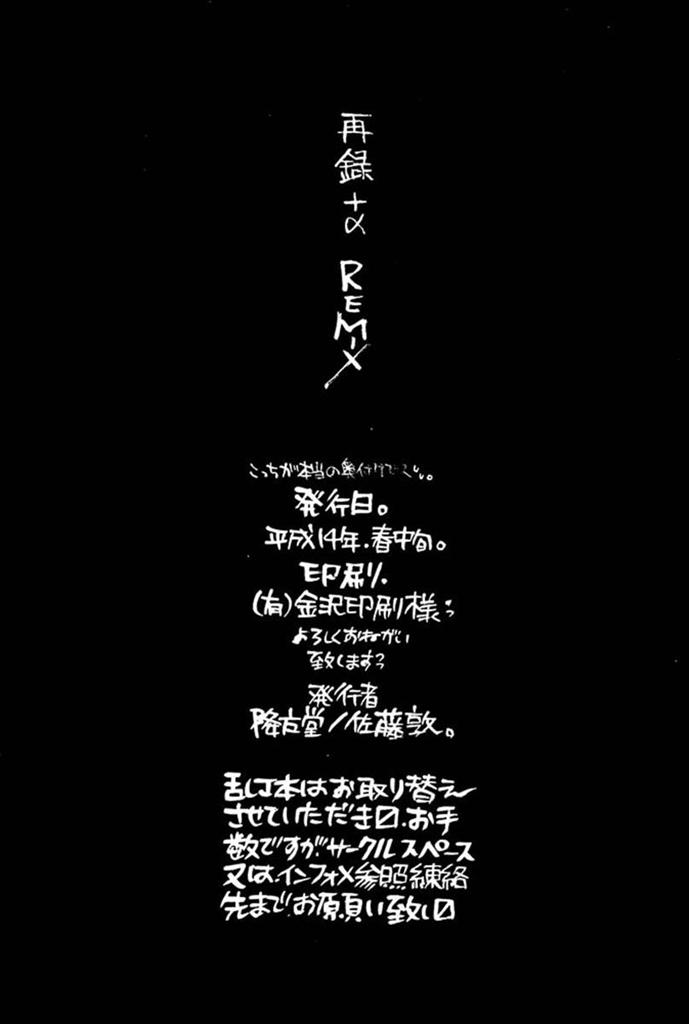 再録+α REMIX
こっちが本当の奥付けで
発行日。
平成14年.春中旬。
印刷.
(有)金沢印刷様:っ
よろしくおねがい
致しますっ
発行者
降方堂/佐藤敦。
乱丁本はお取り替え
させていただき〼.お手
数ですがサークルスペース
又は.インフォメ参照練絡
先まで.お原頁い致し〼